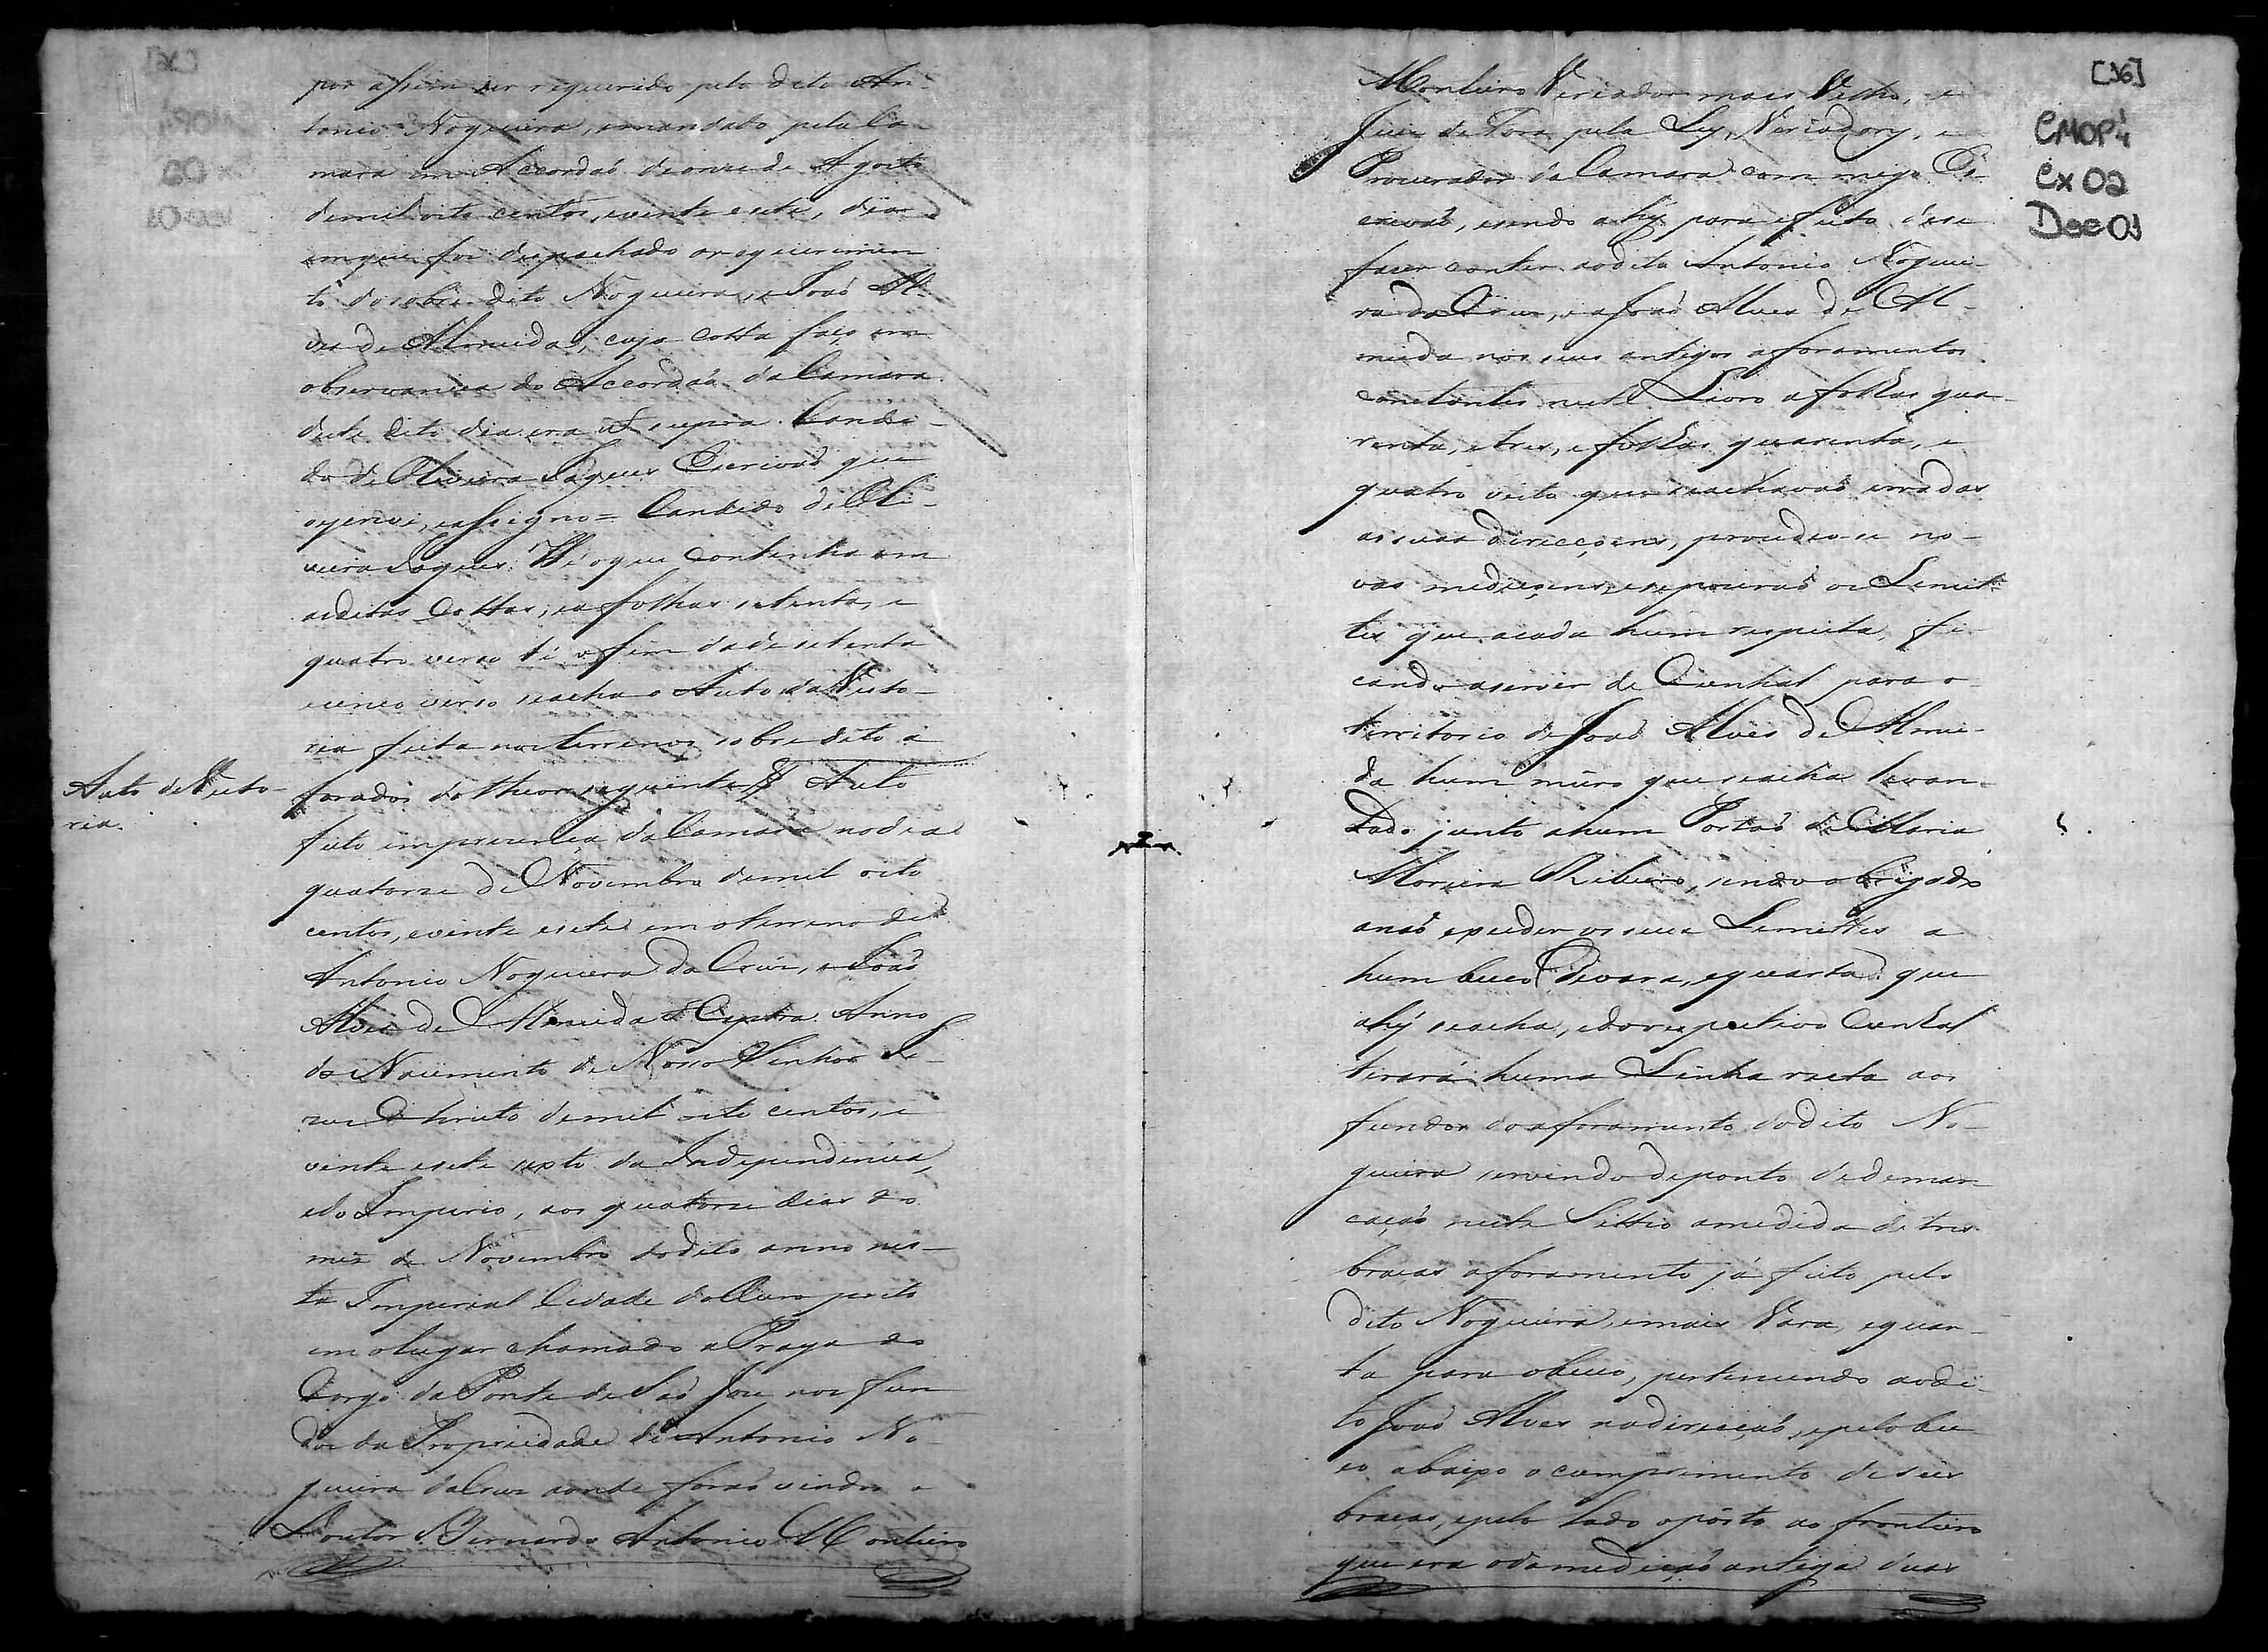 por assim ser requerido pelo dito An-
tonio Nogueira, e mandado pela Ca-
mara em Accordaõ de onze de Agosto
de mil oito centos, e vinte e sete, dia
em que foi despachado o requerimen-
to do sobre dito Nogueira, e Joaõ Al-
ves de Almeida, cuja cotta faço em
observancia do Accordaõ da Camara
deste dito dia era ut supra. Candi-
do de Oliveira Jaques Escrivaõ que
o escrevi, e assigno = Candido de Oli-
veira Jaques. Hé o que continha em
as ditas Cottas, e a folhas setenta, e
quatro verso té o fim da de setenta
e cinco verso se acha o Auto da Visto-
ria feita nos terrenos sobre dito a
Auto de Visto-
ria.
forados do theor seguinte // Auto
feito em prezença da Camara no dia
quatorze de Novembro de mil oito
centos, e vinte e sete em o terreno de
Antonio Nogueira da Cruz, e Joaõ
Alves de Almeida Anno
do Nascimento de Nosso Senhor Je-
zus Christo de mil oito centos, e
vinte e sete sexto da Independencia,
e do Imperio, aos quatorze dias do
mez de Novembro do dito anno nes-
ta Imperial Cidade do Ouro preto
em o lugar chamado a Praya do
Corgo da Ponte de Saõ José nos fun
dos da Propriedade de Antonio No-
gueira da Cruz aonde foraõ vindos o
Doutor Bernardo Antonio Monteiro
Monteiro Veriador mais Velho, e
Juiz de Fora pela Ley, Veriadores, e
Procurador da Camara com migo Es-
crivaõ, e sendo ahy para efeito de se
fazer conter ao dito Antonio Noguei-
ra da Cruz, e a Joaõ Alves de Al-
meida nos seus antigos aforamentos
constantes neste Livro a folhas qua-
renta, e tres, e folhas quarenta, e
quatro visto que se achavaõ erradas
as suas direcçoens, procedeo-se no-
vas mediçoens, e se pozeraõ os Lemit-
tes que a cada hum respeita, fi-
cando a servir de Cunhal para o
territorio de Joaõ Alves de Almei-
da hum muro que se acha levan-
tado junto a hum Portaõ de Maria
Moreira Ribeiro, sendo obrigado
a naõ expeder os seus Lemittes a
hum beco (de vara, e quarta) que
ahy se acha, e do respectivo Cunhal
tirará huma Linha recta aos
fundos do aforamento do dito No-
gueira servindo de ponto de demar-
caçaõ neste Sittio a medida de tres
bracas aforamento já feito pelo
dito Nogueira, e mais Vara, e quar-
ta para o beco, pertencendo ao di-
to Joaõ Alves na direcçaõ, e pelo be-
co abaixo o comprimento de seis
bracas, e pelo lado oposto ao fronteiro
que era o da mediçaõ antiga duas
[36]
CMOP
Cx 02
Doc 01